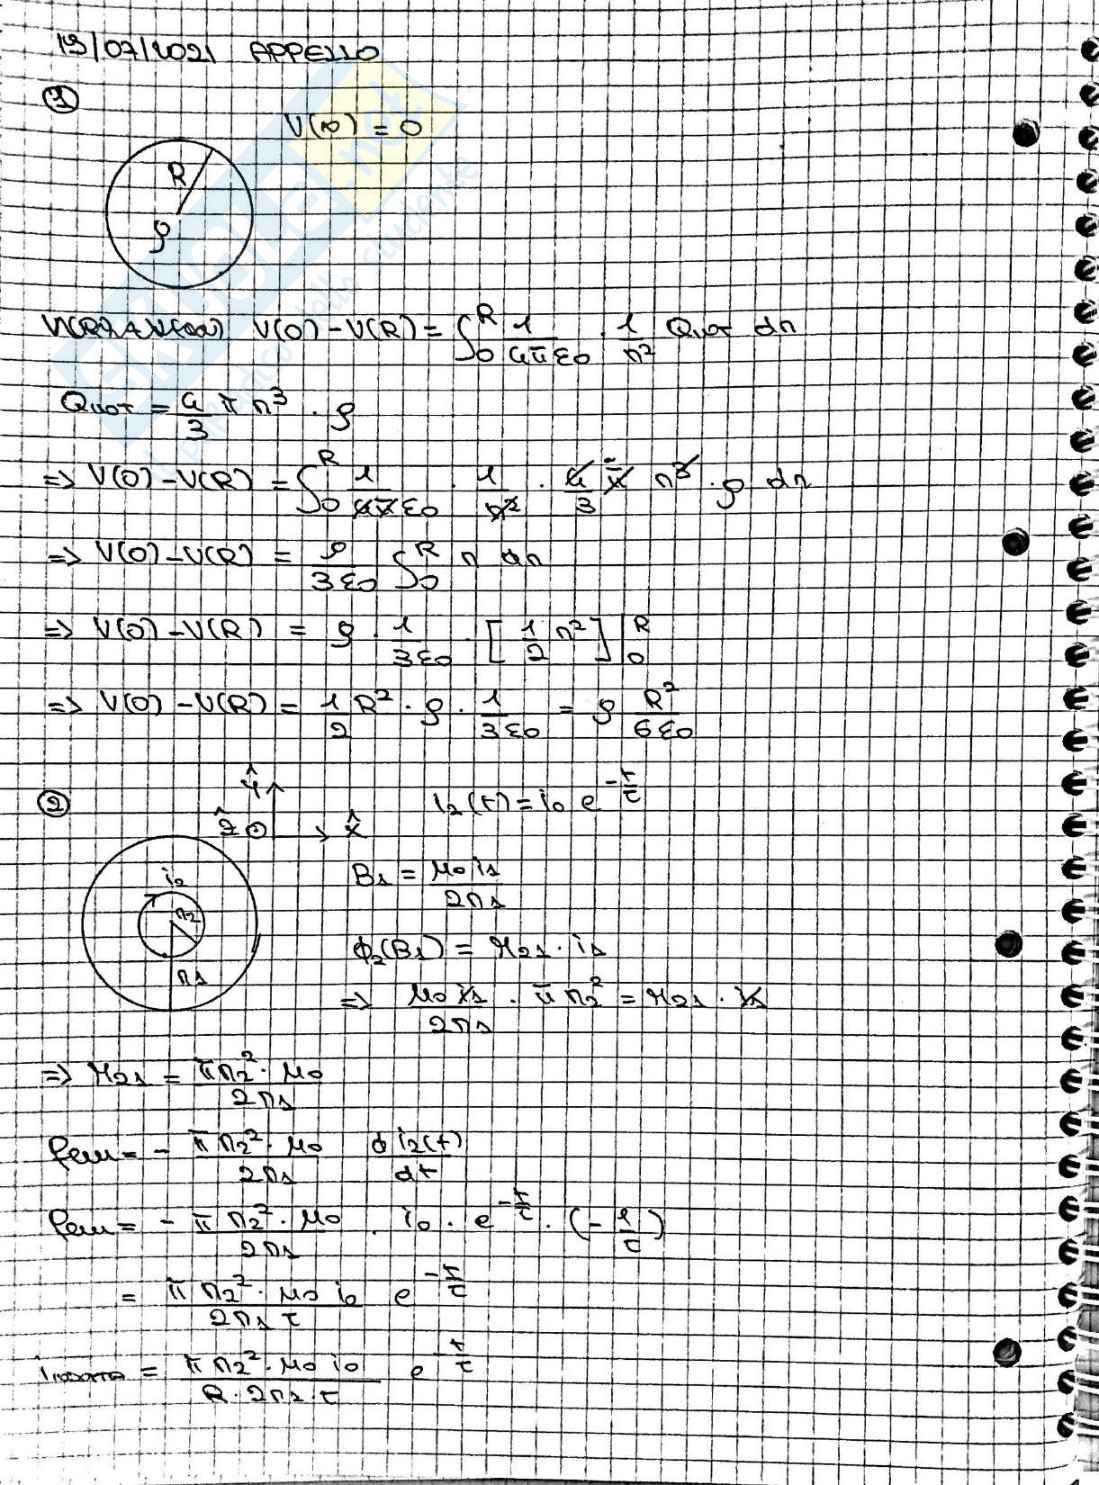 13/07/2021 APPELLO
①
V(∞) = 0
R
ρ
V(0) - V(R) = ∫₀ᴿ 1/(4πε₀) · 1/r² Qtot dr
Qtot = 4/3 π r³ · ρ
=> V(0) - V(R) = ∫₀ᴿ 1/(4πε₀) · 1/r² · 4/3 π r³ · ρ dr
=> V(0) - V(R) = ρ/(3ε₀) ∫₀ᴿ r dr
=> V(0) - V(R) = ρ · 1/(3ε₀) · [1/2 r²]|₀ᴿ
=> V(0) - V(R) = 1/2 R² · ρ · 1/(3ε₀) = ρ R²/(6ε₀)
②
ŷ
ẑ x̂
i₂(t) = i₀ e^(-t/τ)
i₂
r₂
r₁
B₁ = μ₀i₁/(2r₁)
ϕ₂(B₁) = M₂₁ · i₁
=> μ₀i₁/(2r₁) · π r₂² = M₂₁ · i₁
=> M₂₁ = πr₂² · μ₀/(2r₁)
fem = - π r₂² · μ₀/(2r₁) d i₂(t)/dt
fem = - π r₂² · μ₀/(2r₁) · i₀ · e^(-t/τ) · (-1/τ)
= π r₂² · μ₀ i₀/(2r₁ τ) e^(-t/τ)
iindotta = π r₂² · μ₀ i₀/(R · 2r₁ · τ) e^(-t/τ)